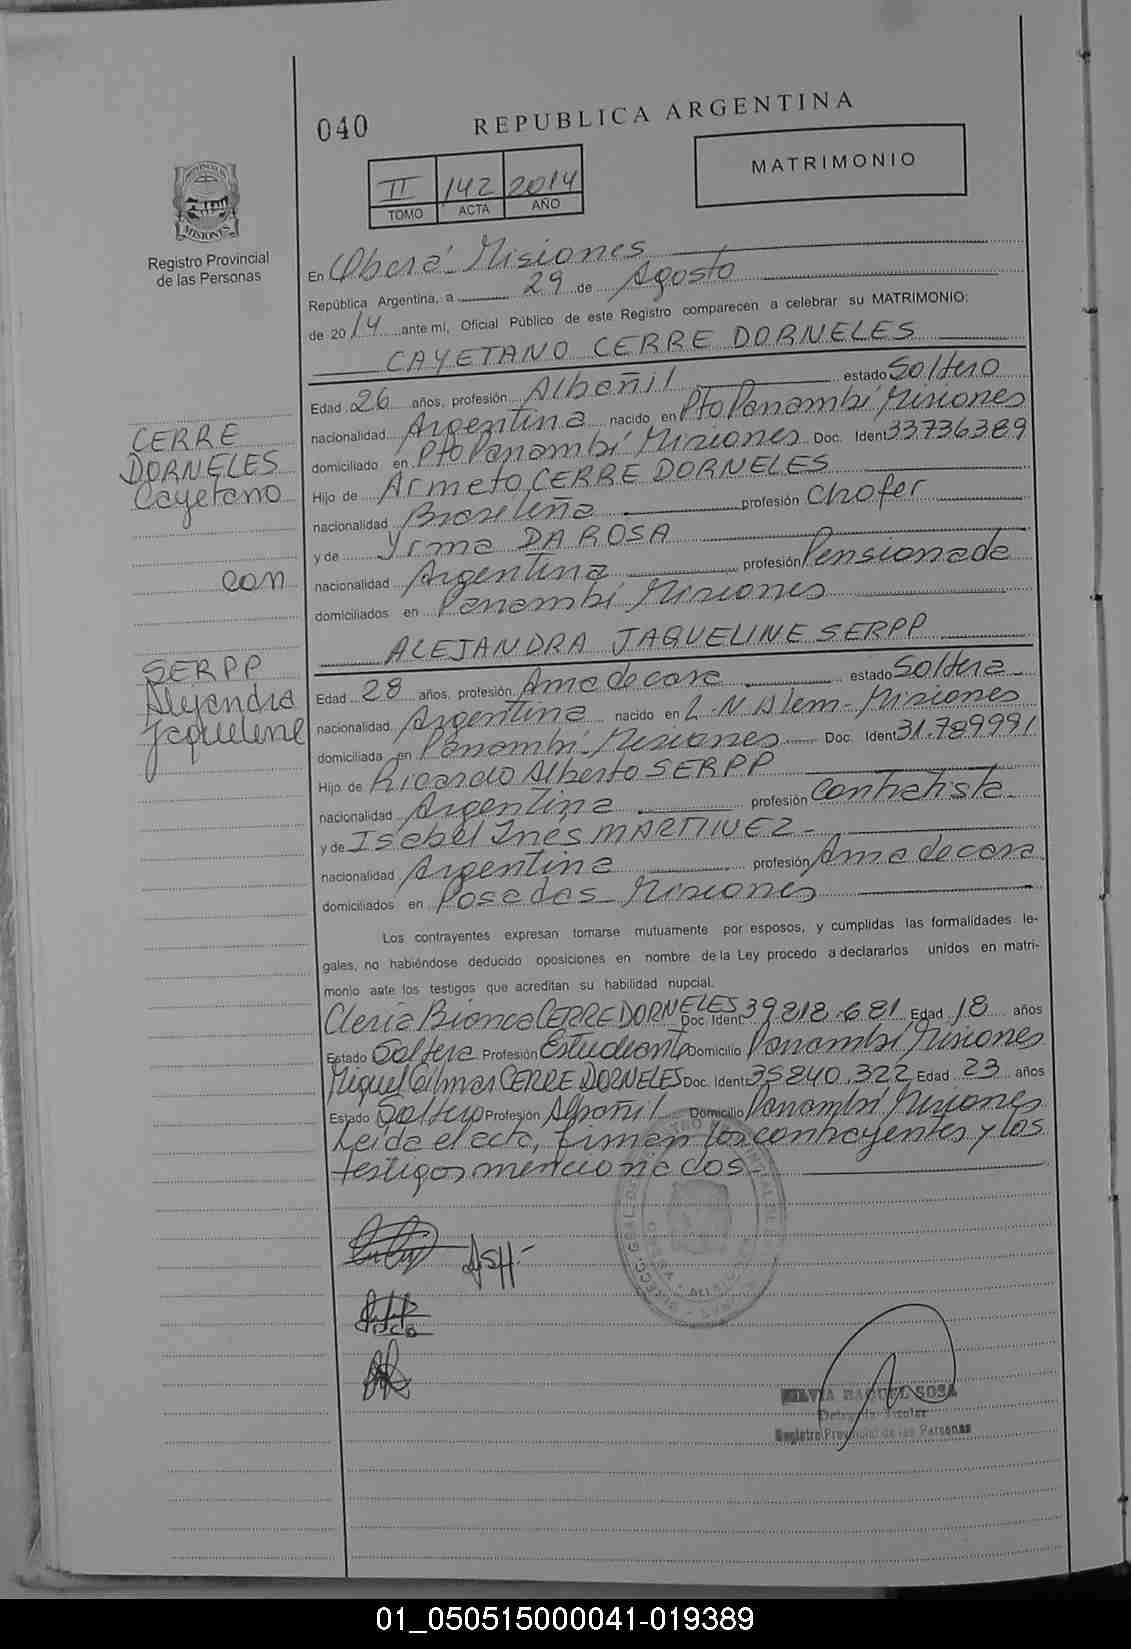 040
REPUBLICA ARGENTINA
MATRIMONIO
II 142 2014
TOMO ACTA AÑO
PROVINCIA DE
MISIONES
Registro Provincial
de las Personas
En Oberá - Misiones
República Argentina, a 29 de Agosto
de 20 14 ante mí, Oficial Público de este Registro comparecen a celebrar su MATRIMONIO:
CAYETANO CERRE DORNELES
Edad 26 años, profesión Albañil estado Soltero
nacionalidad Argentina nacido en Pto Panambí Misiones
domiciliado en Pto Panambí Misiones Doc. Ident 33736389
Hijo de Armeto CERRE DORNELES
nacionalidad Brasileña profesión Chofer
y de Yrma DA ROSA
nacionalidad Argentina profesión Pensionada
domiciliados en Panambí Misiones
CERRE
DORNELES
Cayetano
con
SERPP
Alejandra
Jaqueline
ALEJANDRA JAQUELINE SERPP
Edad 28 años, profesión Ama de casa estado Soltera
nacionalidad Argentina nacido en L.N Alem - Misiones
domiciliada en Panambí - Misiones Doc. Ident 31.789991
Hijo de Ricardo Alberto SERPP
nacionalidad Argentina profesión Contratista
y de Isabel Inés MARTINEZ -
nacionalidad Argentina profesión Ama de casa
domiciliados en Posadas - Misiones
Los contrayentes expresan tomarse mutuamente por esposos, y cumplidas las formalidades le-
gales, no habiéndose deducido oposiciones en nombre de la Ley procedo a declararlos unidos en matri-
monio ante los testigos que acreditan su habilidad nupcial.
Cleria Bianca CERRE DORNELES Doc. Ident. 39818.681 Edad 18 años
Estado Soltera Profesión Estudiante Domicilio Panambí Misiones
Miguel Gilmar CERRE DORNELES Doc. Ident. 35840.322 Edad 23 años
Estado Soltero Profesión Albañil Domicilio Panambí Misiones
Leida el acta, firman los contrayentes y los
testigos mencionados -
ASH -
SILVIA RAQUEL SOSA
Delegada Titular
Registro Provincial de las Personas
01_050515000041-019389